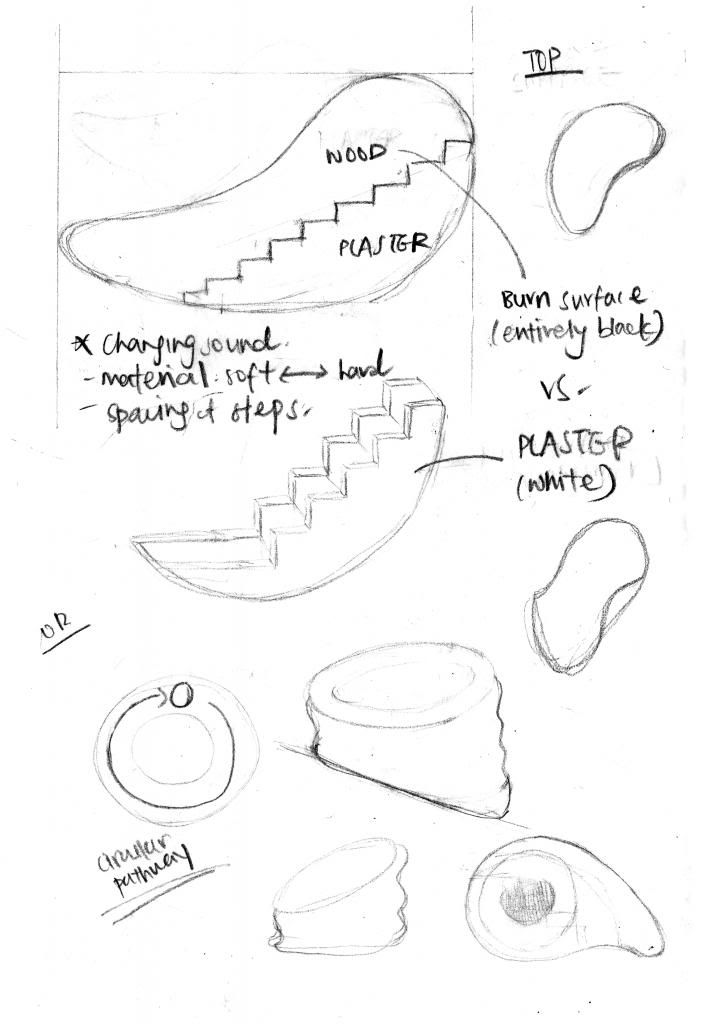 TOP
WOOD
PLASTER
Burn surface
(entirely black)
VS.
PLASTER
(white)
* Changing sound.
- material: soft ↔ hard
- spacing of steps.
OR
circular
pathway